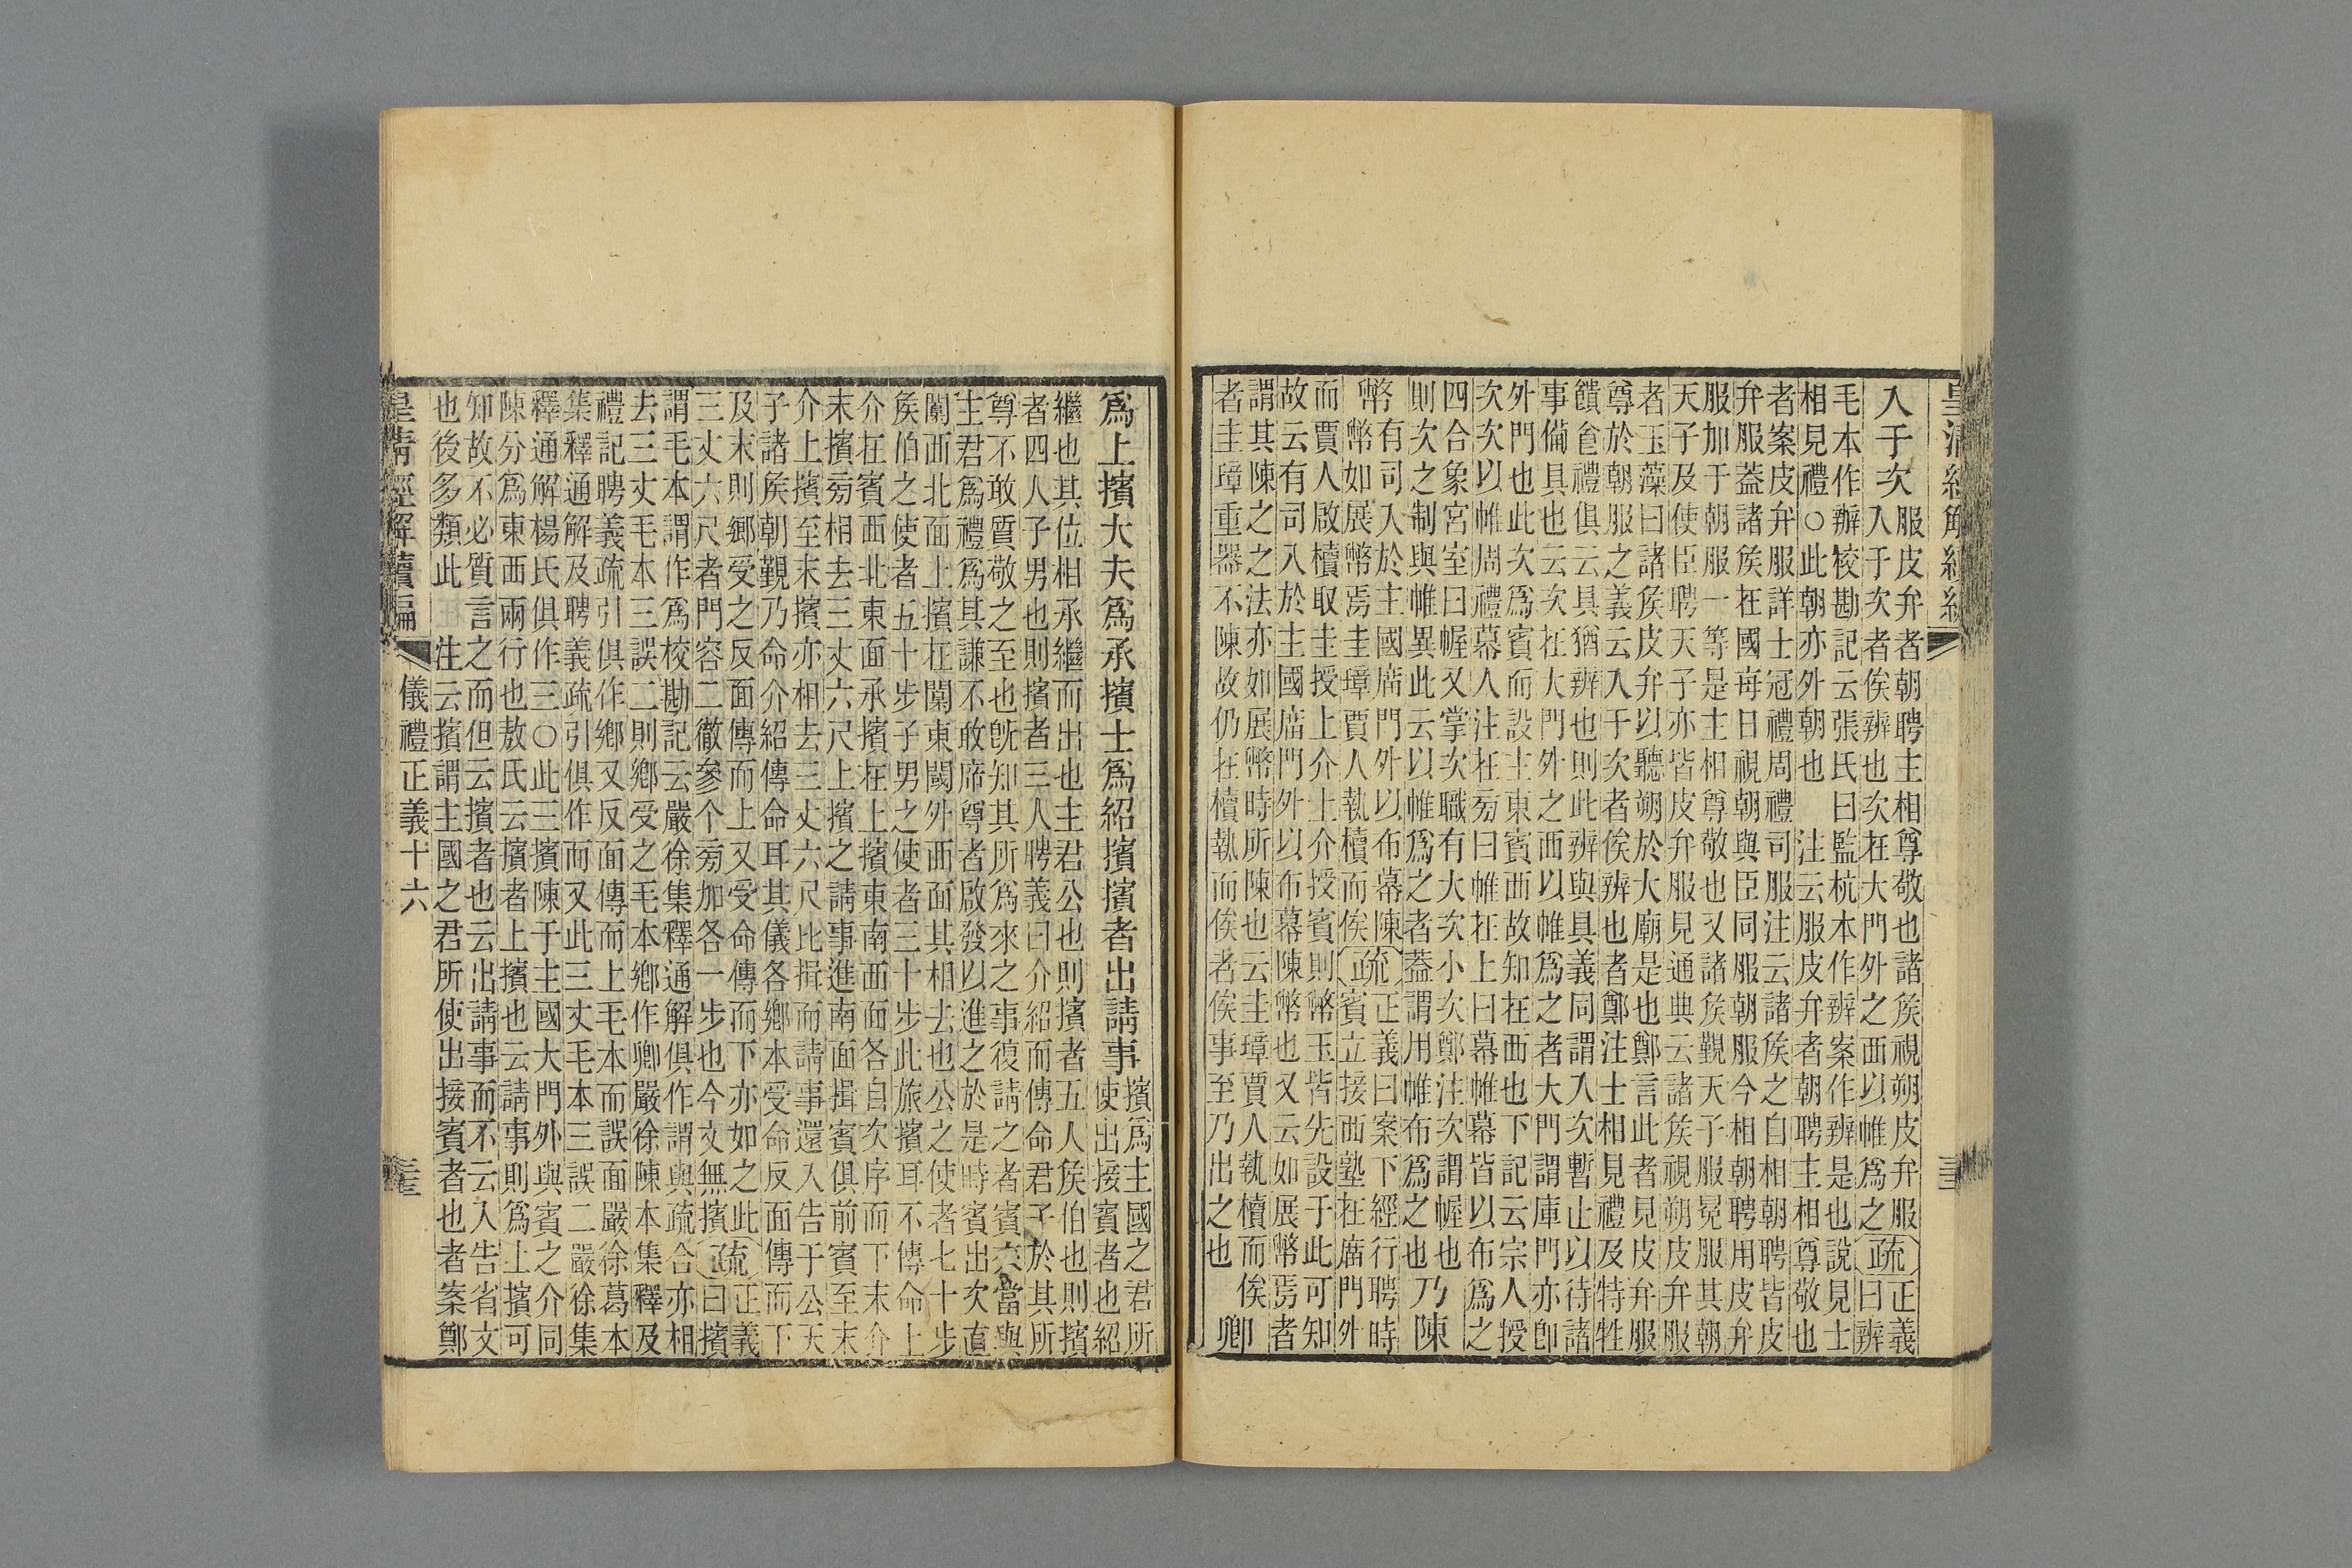 皇清經解續編
入于次服皮弁者朝聘主相尊敬也諸矦視朔皮弁服
入于次者俟辨也次在大門外之西以帷爲之疏正義曰辨
毛本作辦校勘記云張氏曰監杭本作辨案作辨是也說見士
相見禮○此朝亦外朝也　注云服皮弁者朝聘主相尊敬也
者案皮弁服詳士冠禮周禮司服注云諸矦之自相朝聘皆皮
弁服蓋諸矦在國每日視朝與臣同服朝服今相朝聘用皮弁
服加于朝服一等是主相尊敬也又諸矦覲天子服冕服其朝
天子及使臣聘天子亦皆皮弁服見通典云諸矦視朔皮弁服
者玉藻曰諸矦皮弁以聽朔於大廟是也鄭言此者見皮弁服
尊於朝服之義云入于次者俟辨也者鄭注士相見禮及特牲
饋食禮俱云具猶辨也則此辨與具義同謂入次暫止以待諸
事備具也云次在大門外之西以帷爲之者大門謂庫門亦卽
外門也此次爲賓而設主東賓西故知在西也下記云宗人授
次次以帷周禮幕人注在旁曰帷在上曰幕帷幕皆以布爲之
四合象宮室曰幄又掌次職有大次小次鄭注次謂幄也
則次之制與帷異此云以帷爲之者蓋謂用帷布爲之也乃陳
幣有司入於主國庿門外以布幕陳
幣如展幣焉圭璋賈人執櫝而俟疏正義曰案下經行聘時
賓立接西塾在庿門外
而賈人啟櫝取圭授上介上介授賓則幣玉皆先設于此可知
故云有司入於主國庿門外以布幕陳幣也又云如展幣焉者
謂其陳之之法亦如展幣時所陳也云圭璋賈人執櫝而俟
者圭璋重器不陳故仍在櫝執而俟者俟事至乃出之也卿
爲上擯大夫爲承擯士爲紹擯擯者出請事擯爲主國之君所
使出接賓者也紹
繼也其位相承繼而出也主君公也則擯者五人矦伯也則擯
者四人子男也則擯者三人聘義曰介紹而傳命君子於其所
尊不敢質敬之至也旣知其所爲來之事復請之者賓來當與
主君爲禮爲其謙不敢㡿尊者啟發以進之於是時賓出次直
闑西北面上擯在闑東閾外西面其相去也公之使者七十步
矦伯之使者五十步子男之使者三十步此旅擯耳不傳命上
介在賓西北東面承擯在上擯東南西面各自次序而下末介
末擯旁相去三丈六尺上擯之請事進南面揖賓俱前賓至末
介上擯至末擯亦相去三丈六尺比揖而請事還入告于公天
子諸矦朝覲乃命介紹傳命耳其儀各鄉本受命反面傳而下
及末則鄉受之反面傳而上又受命傳而下亦如之此
三丈六尺者門容二徹參个旁加各一步也今文無擯疏正義曰擯
謂毛本謂作爲校勘記云嚴徐集釋通解俱作謂與疏合亦相
去三丈毛本三誤二則鄉受之毛本鄉作卿嚴徐陳本集釋及
禮記聘義疏引俱作鄉又反面傳而上毛本而誤面嚴徐葛本
集釋通解及聘義疏引俱作而又此三丈毛本三誤二嚴徐集
釋通解楊氏俱作三○此三擯陳于主國大門外與賓之介同
陳分爲東西兩行也敖氏云擯者上擯也云請事則爲上擯可
知故不必質言之而但云擯者也云出請事而不云入告省文
也後多類此　注云擯謂主國之君所使出接賓者也者案鄭
皇清經解續編　儀禮正義十六